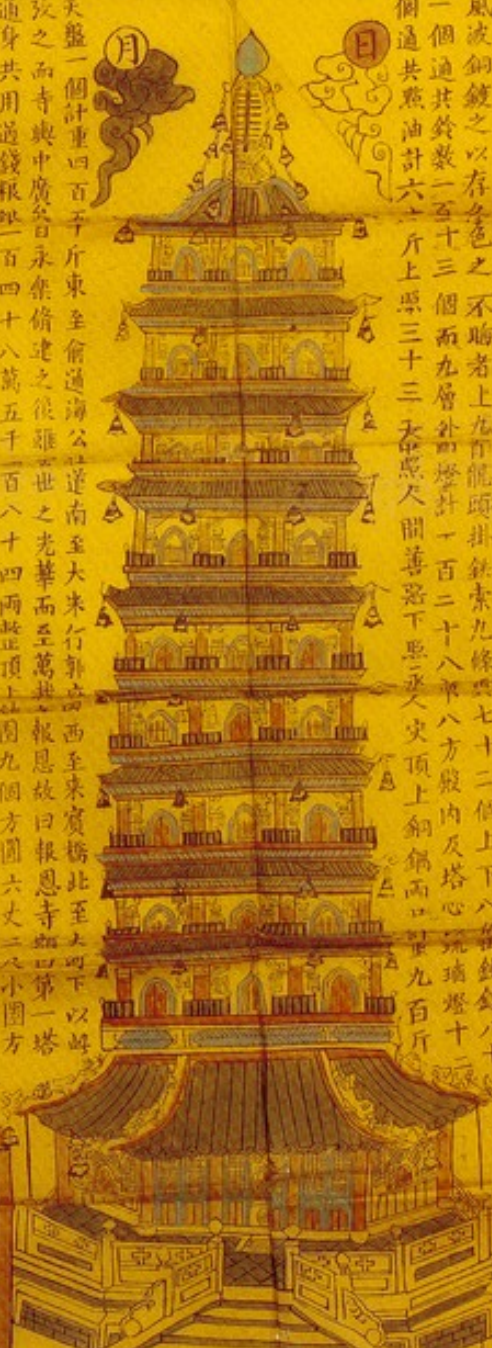 日
月
風波銅鍍之以存色之不晦者上九龍頭掛鉄索九條七十二個上下八角銅八十
一個通共鈴數一百十三個而九層外面燈計一百二十八八方殿內及塔心琉璃燈十二
個通共點油計六十斤上照三十三天照人間善惡下照人災頂上銅鍋兩口重九百斤
天盤一個計重四百五十斤東至俞通海公道南至大米行郭西至來賓橋北至大下以
攷之而寺與中廣永樂脩建之後雖世之光華而至萬報恩故曰報恩寺第一塔
通身共用過錢粮銀百四十八萬五千百八十四兩整頂上九個方圓六丈二尺小圈方